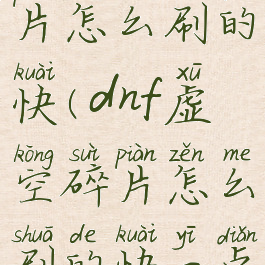 片怎么刷的
kuài xū
快(dnf虚
kōng suì piàn zěn me
空碎片怎么
shuā de kuài yī diǎn
刷的快一点